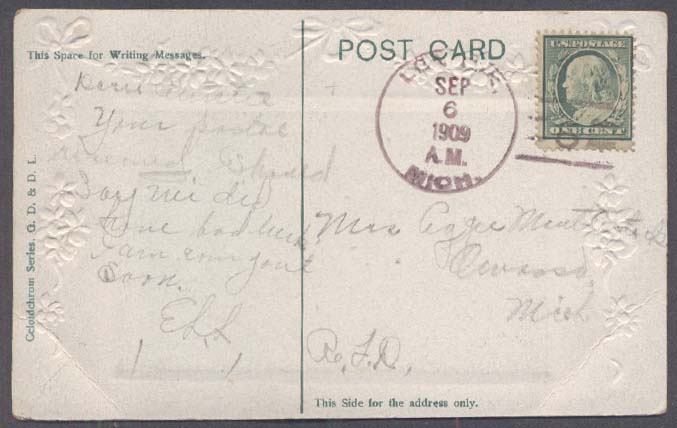 This Space for Writing Messages.
POST CARD
U.S. POSTAGE
ONE CENT
SEP
6
1909
A.M.
MICH.
Your postal
received. Should
say we did
have bad luck
I am coming out
soon.
Mrs
Owosso,
Mich.
R.F.D.
Celoidchrom Series. G. D. & D. L.
This Side for the address only.